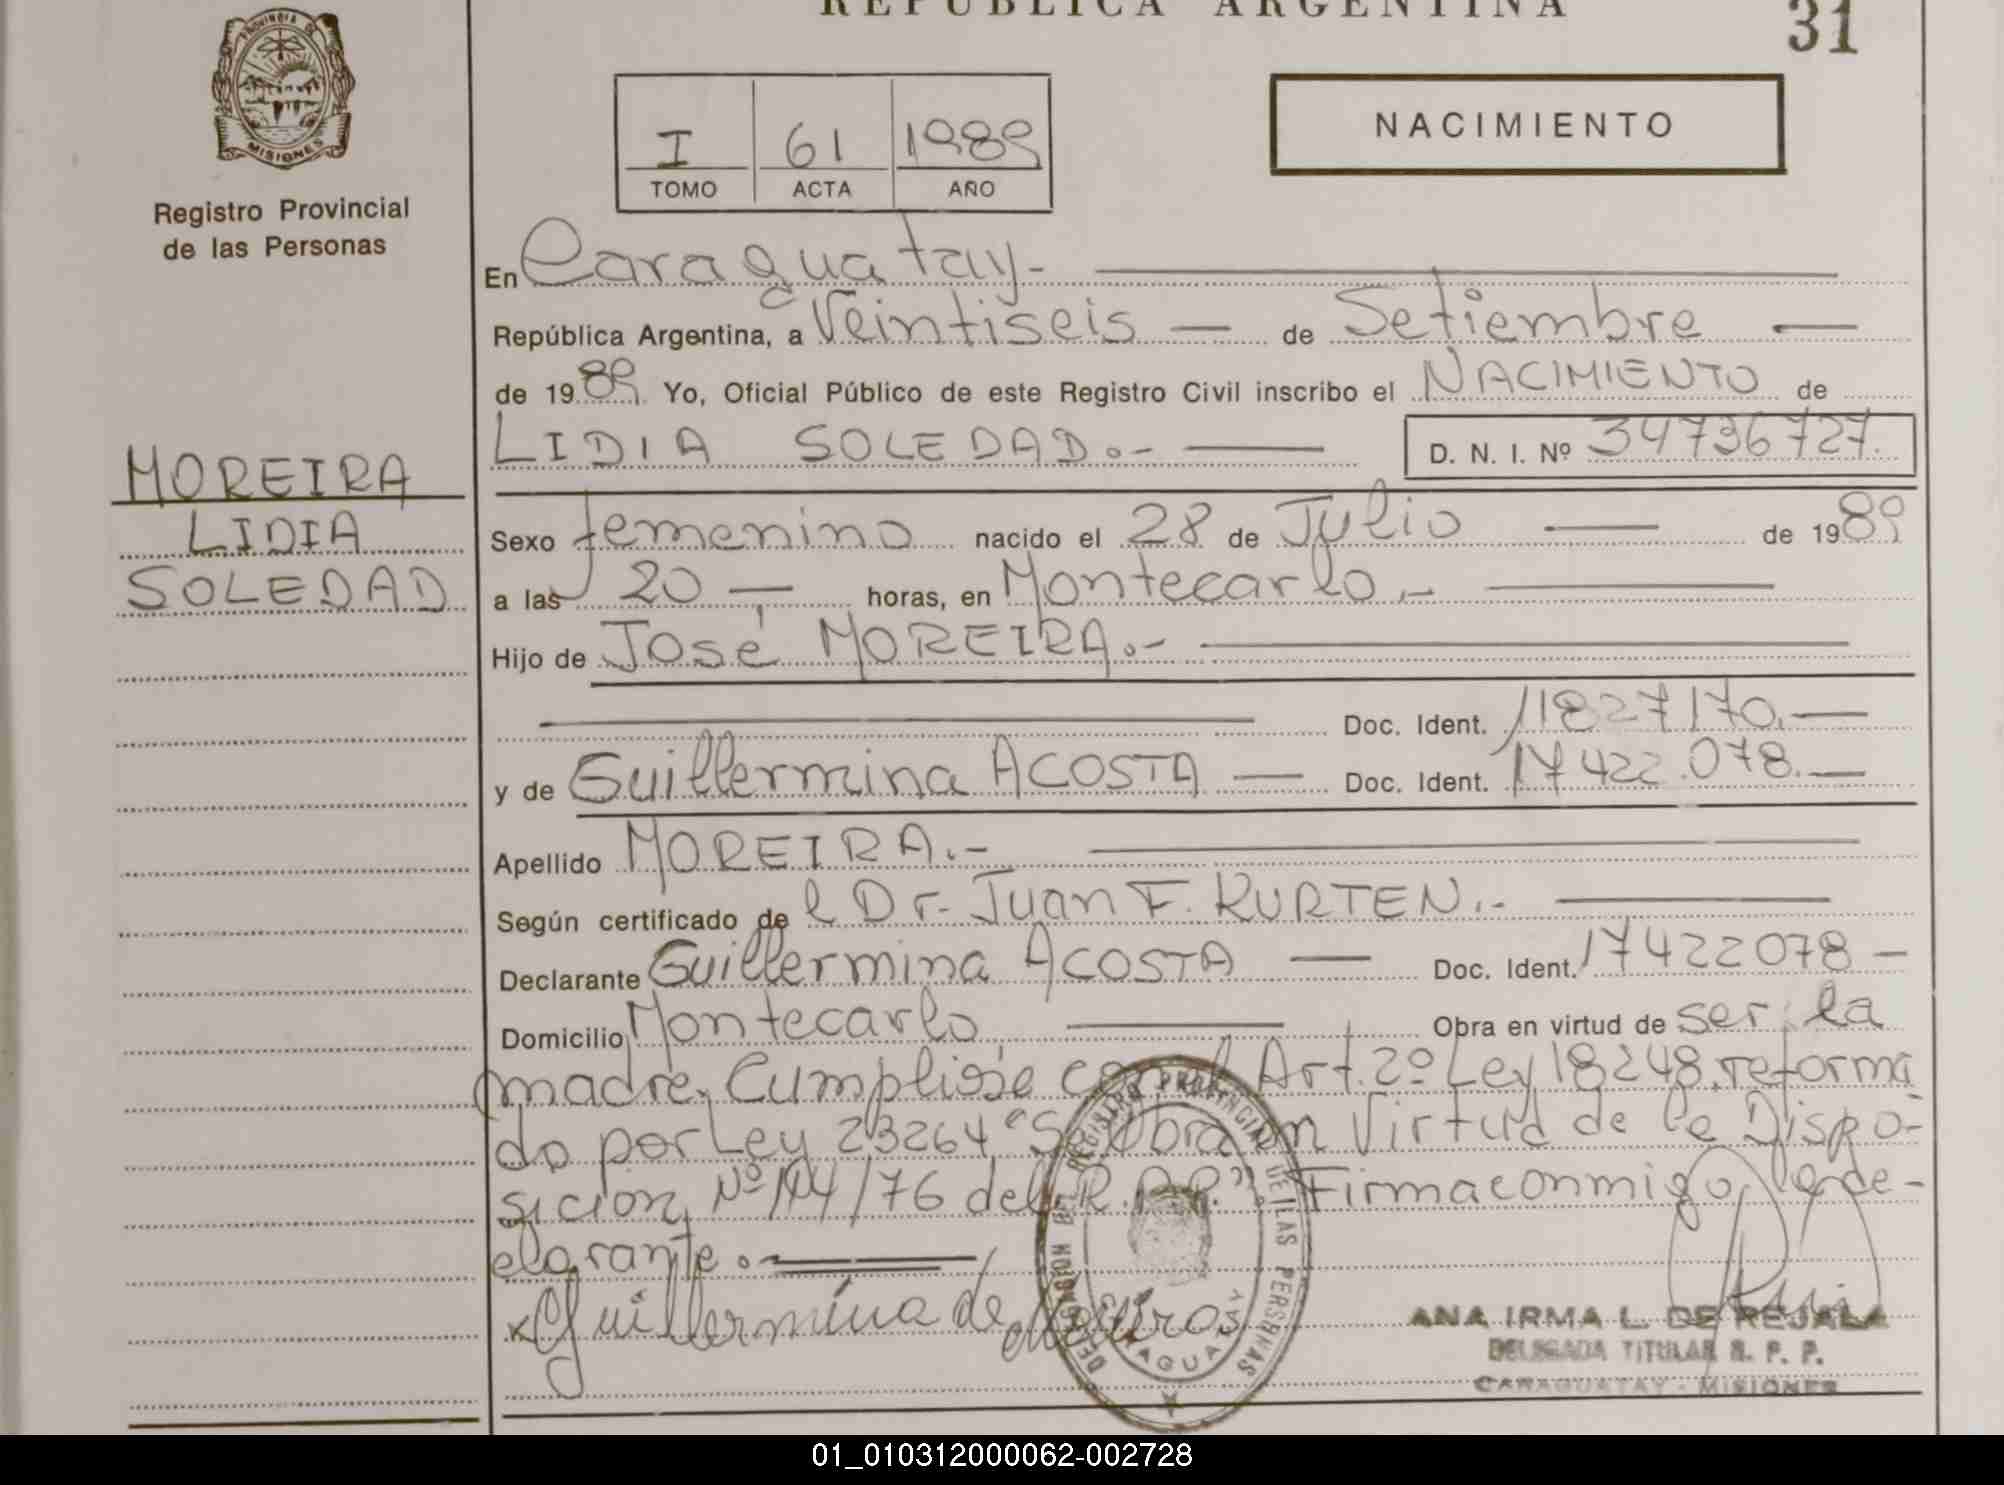 REPUBLICA ARGENTINA
31
PROVINCIA DE
MISIONES
Registro Provincial
de las Personas
I 61 1989
TOMO ACTA AÑO
NACIMIENTO
En Caraguatay.-
República Argentina, a Veintiseis — de Setiembre —
de 1989 Yo, Oficial Público de este Registro Civil inscribo el NACIMIENTO de
LIDIA SOLEDAD.- — D. N. I. Nº 34736727.
MOREIRA
LIDIA
SOLEDAD
Sexo femenino nacido el 28 de Julio — de 1989
a las 20 — horas, en Montecarlo.-
Hijo de José MOREIRA.-
Doc. Ident. 11827170.—
y de Guillermina ACOSTA — Doc. Ident. 17422.078.—
Apellido MOREIRA.-
Según certificado de l Dr. Juan F. KURTEN.-
Declarante Guillermina ACOSTA — Doc. Ident. 17422078-
Domicilio Montecarlo — Obra en virtud de ser la
madre, Cumplióse con el Art. 2º Ley 18248, reforma
do por Ley 23264 "Se Obra en Virtud de la Dispo-
sicion Nº 144/76 del R.P.P.". Firma conmigo la de-
clarante.
x Guillermina de
DELEGACION DEL REGISTRO PROVINCIAL DE LAS PERSONAS
CARAGUATAY
ANA IRMA L. DE REJALA
DELEGADA TITULAR R. P. P.
CARAGUATAY - MISIONES
01_010312000062-002728